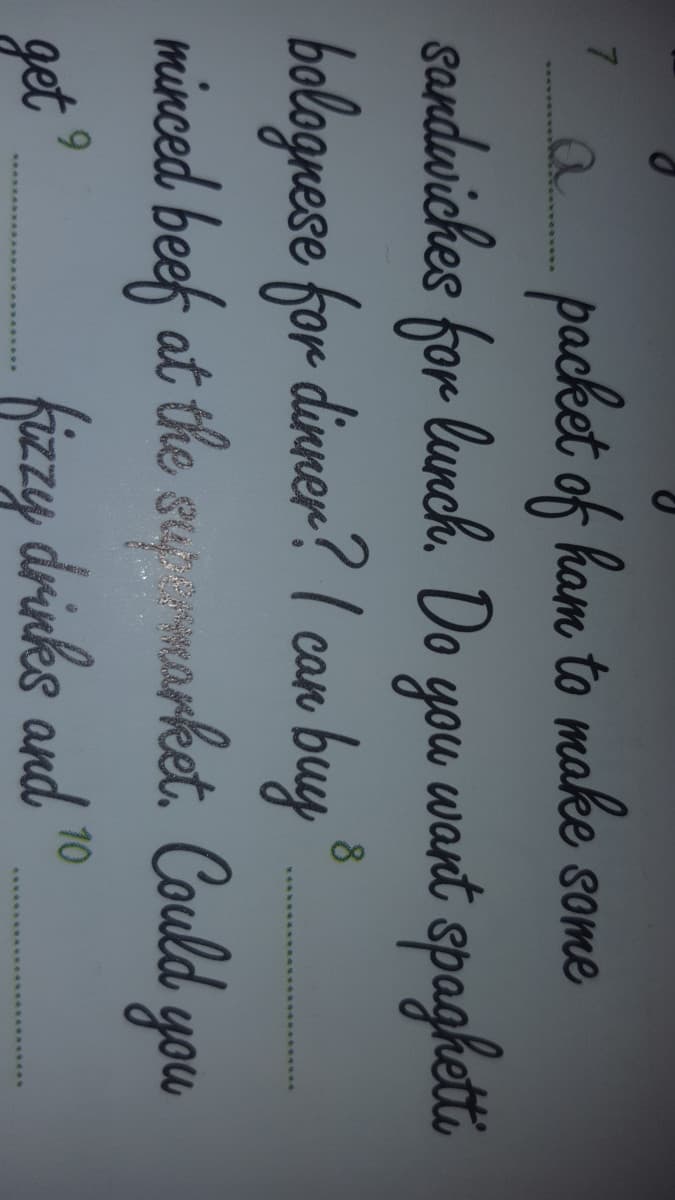 7 a packet of ham to make some
sandwiches for lunch. Do you want spaghetti
bolognese for dinner? I can buy 8
minced beef at the supermarket. Could you
get 9 fizzy drinks and 10